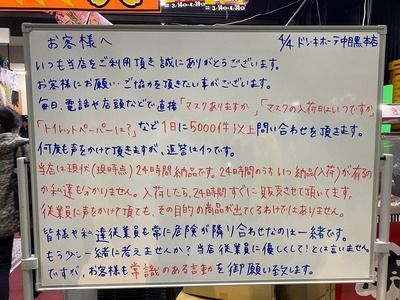 お客様へ
4/4 ドン・キホーテ中目黒本店
いつも当店をご利用頂き誠にありがとうございます。
お客様にお願い…ご協力を頂きたい事がございます。
毎日、電話や店頭などで直接「マスクありますか」「マスクの入荷日はいつですか」
「トイレットペーパーは?」など1日に5000件以上問い合わせを頂きます。
何度も声をかけて頂きますが、返答は1つです。
当店は現状(現時点)24時間納品です。24時間のうちいつ納品(入荷)が有るの
か私達も分かりません。入荷したら、24時間すぐに販売させて頂いてます。
従業員に声をかけて頂ても、その目的の商品が出てくるわけではありません。
皆様や私達従業員も常に危険が隣り合わせなのは一緒です。
もう少し一緒に考えませんか?当店従業員に優しくして!とは言いません。
ですが、お客様も常識のある言動を御願い致します。